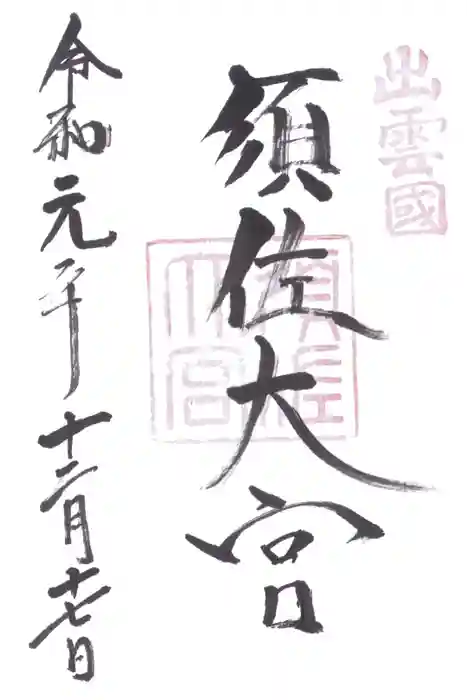 出雲國
須佐大宮
須佐
大宮
令和元年十二月十七日